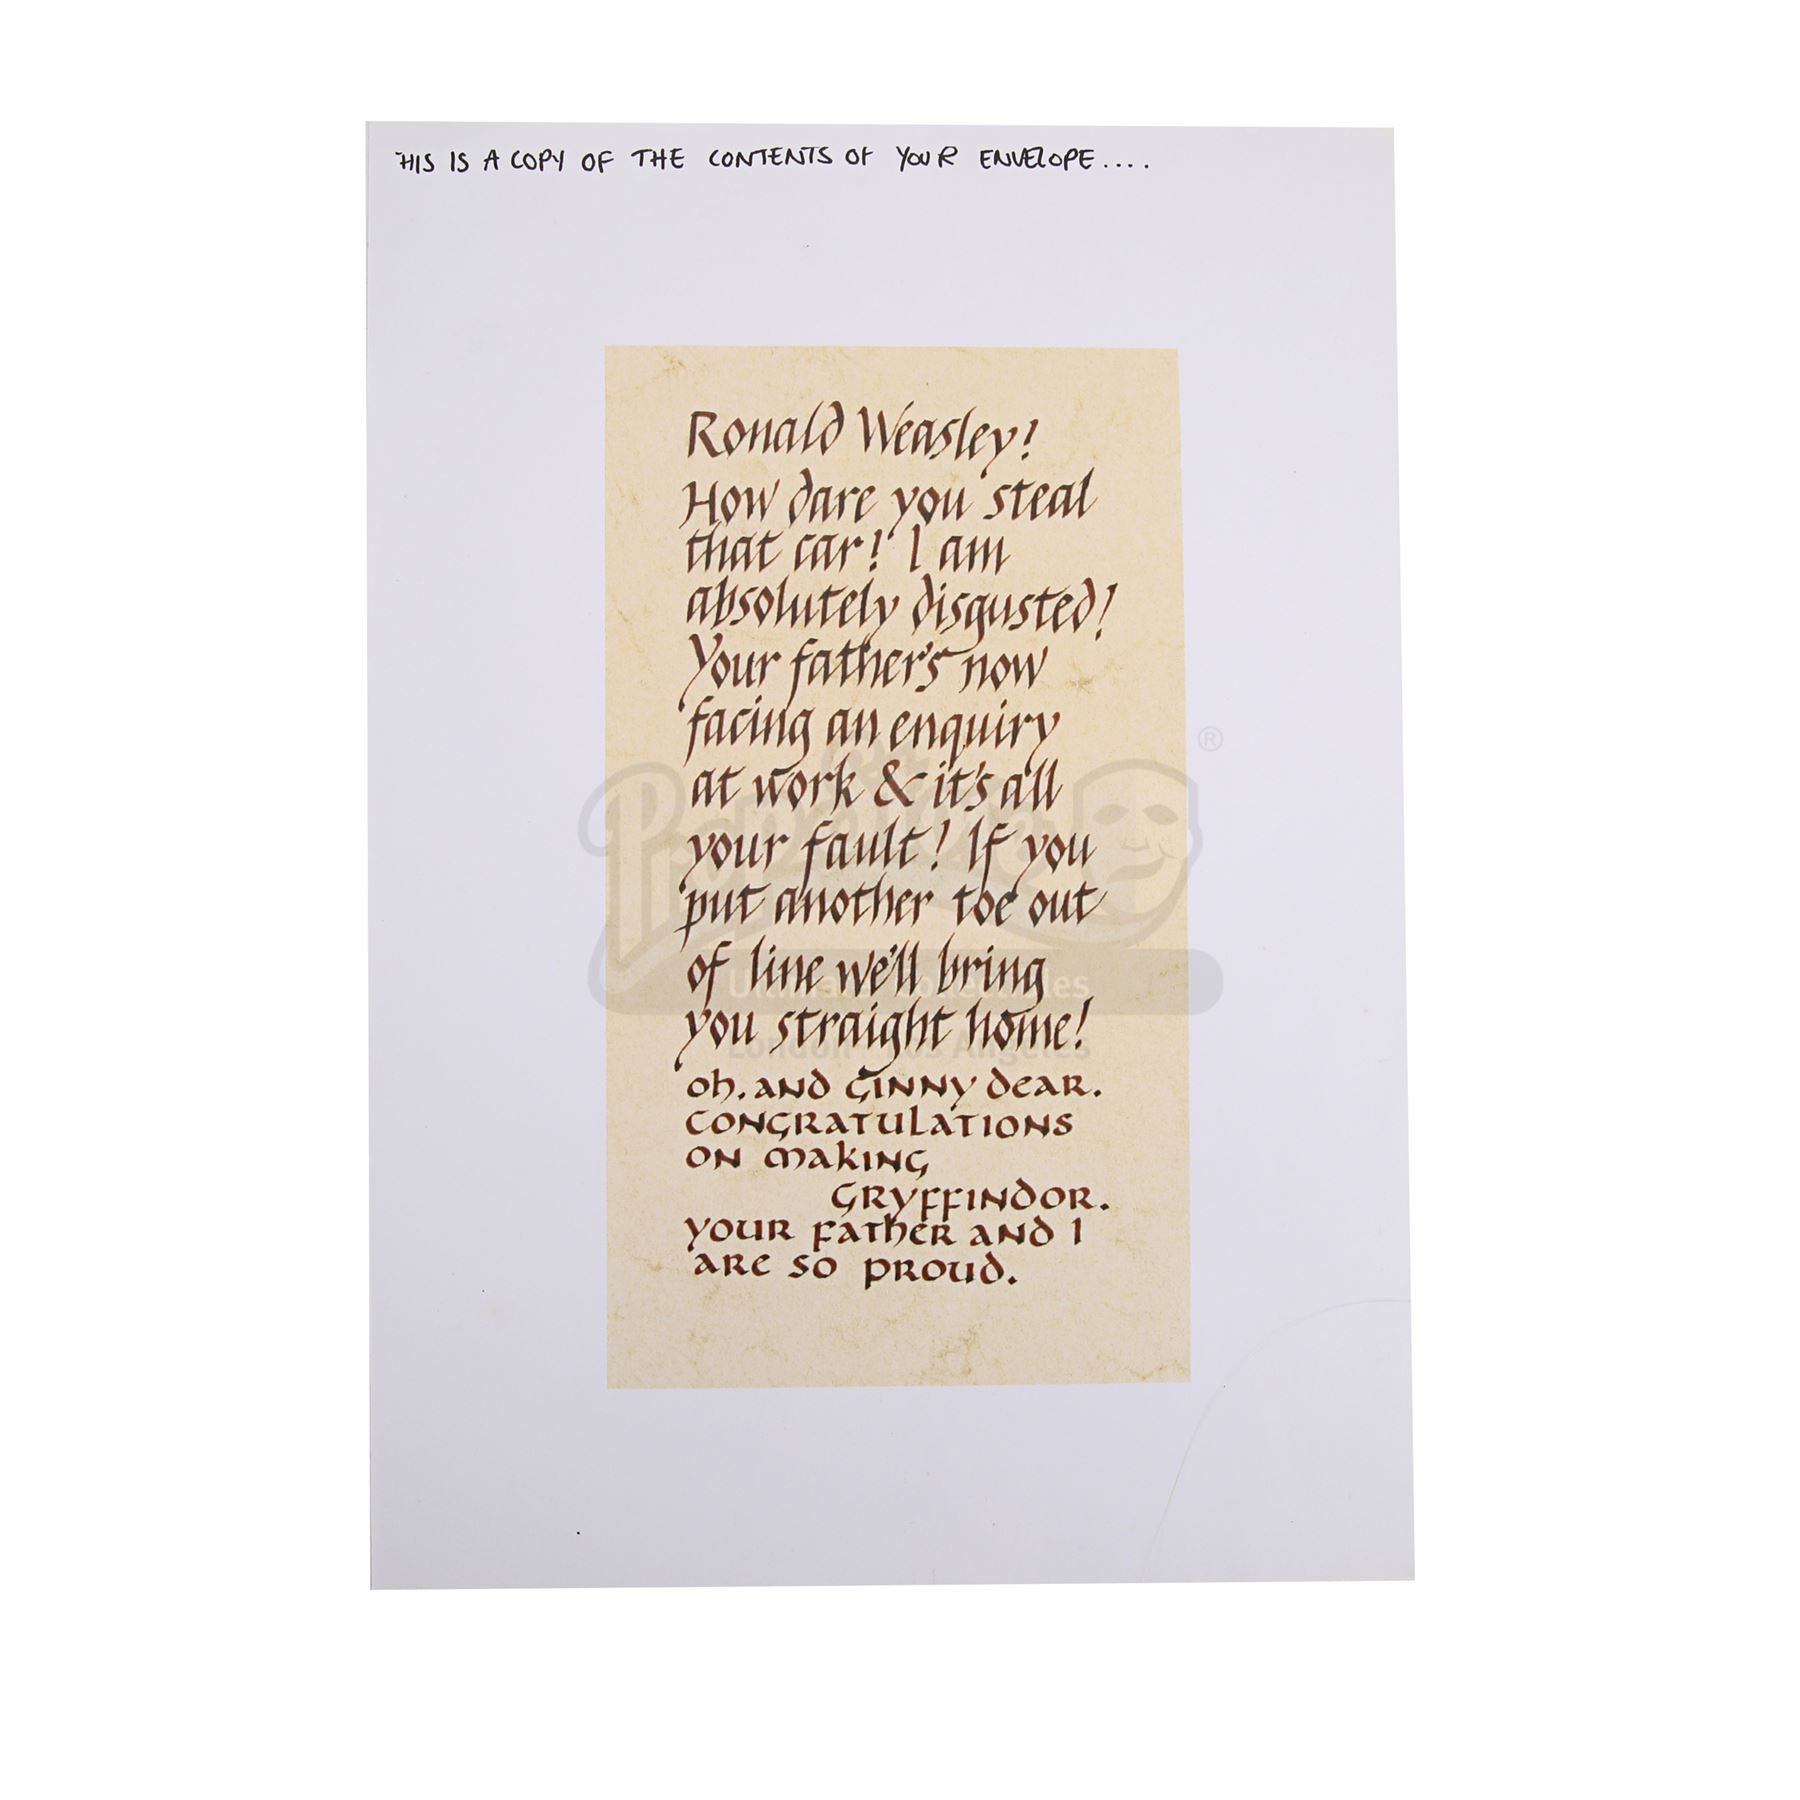 THIS IS A COPY OF THE CONTENTS OF YOUR ENVELOPE....
Ronald Weasley!
How dare you steal
that car! I am
absolutely disgusted!
Your father's now
facing an enquiry
at work & it's all
your fault! If you
put another toe out
of line we'll bring
you straight home!
oh. and Ginny dear.
congratulations
on making
Gryffindor.
your father and I
are so proud.
®
Propstore
Ultimate Collectibles
London · Los Angeles